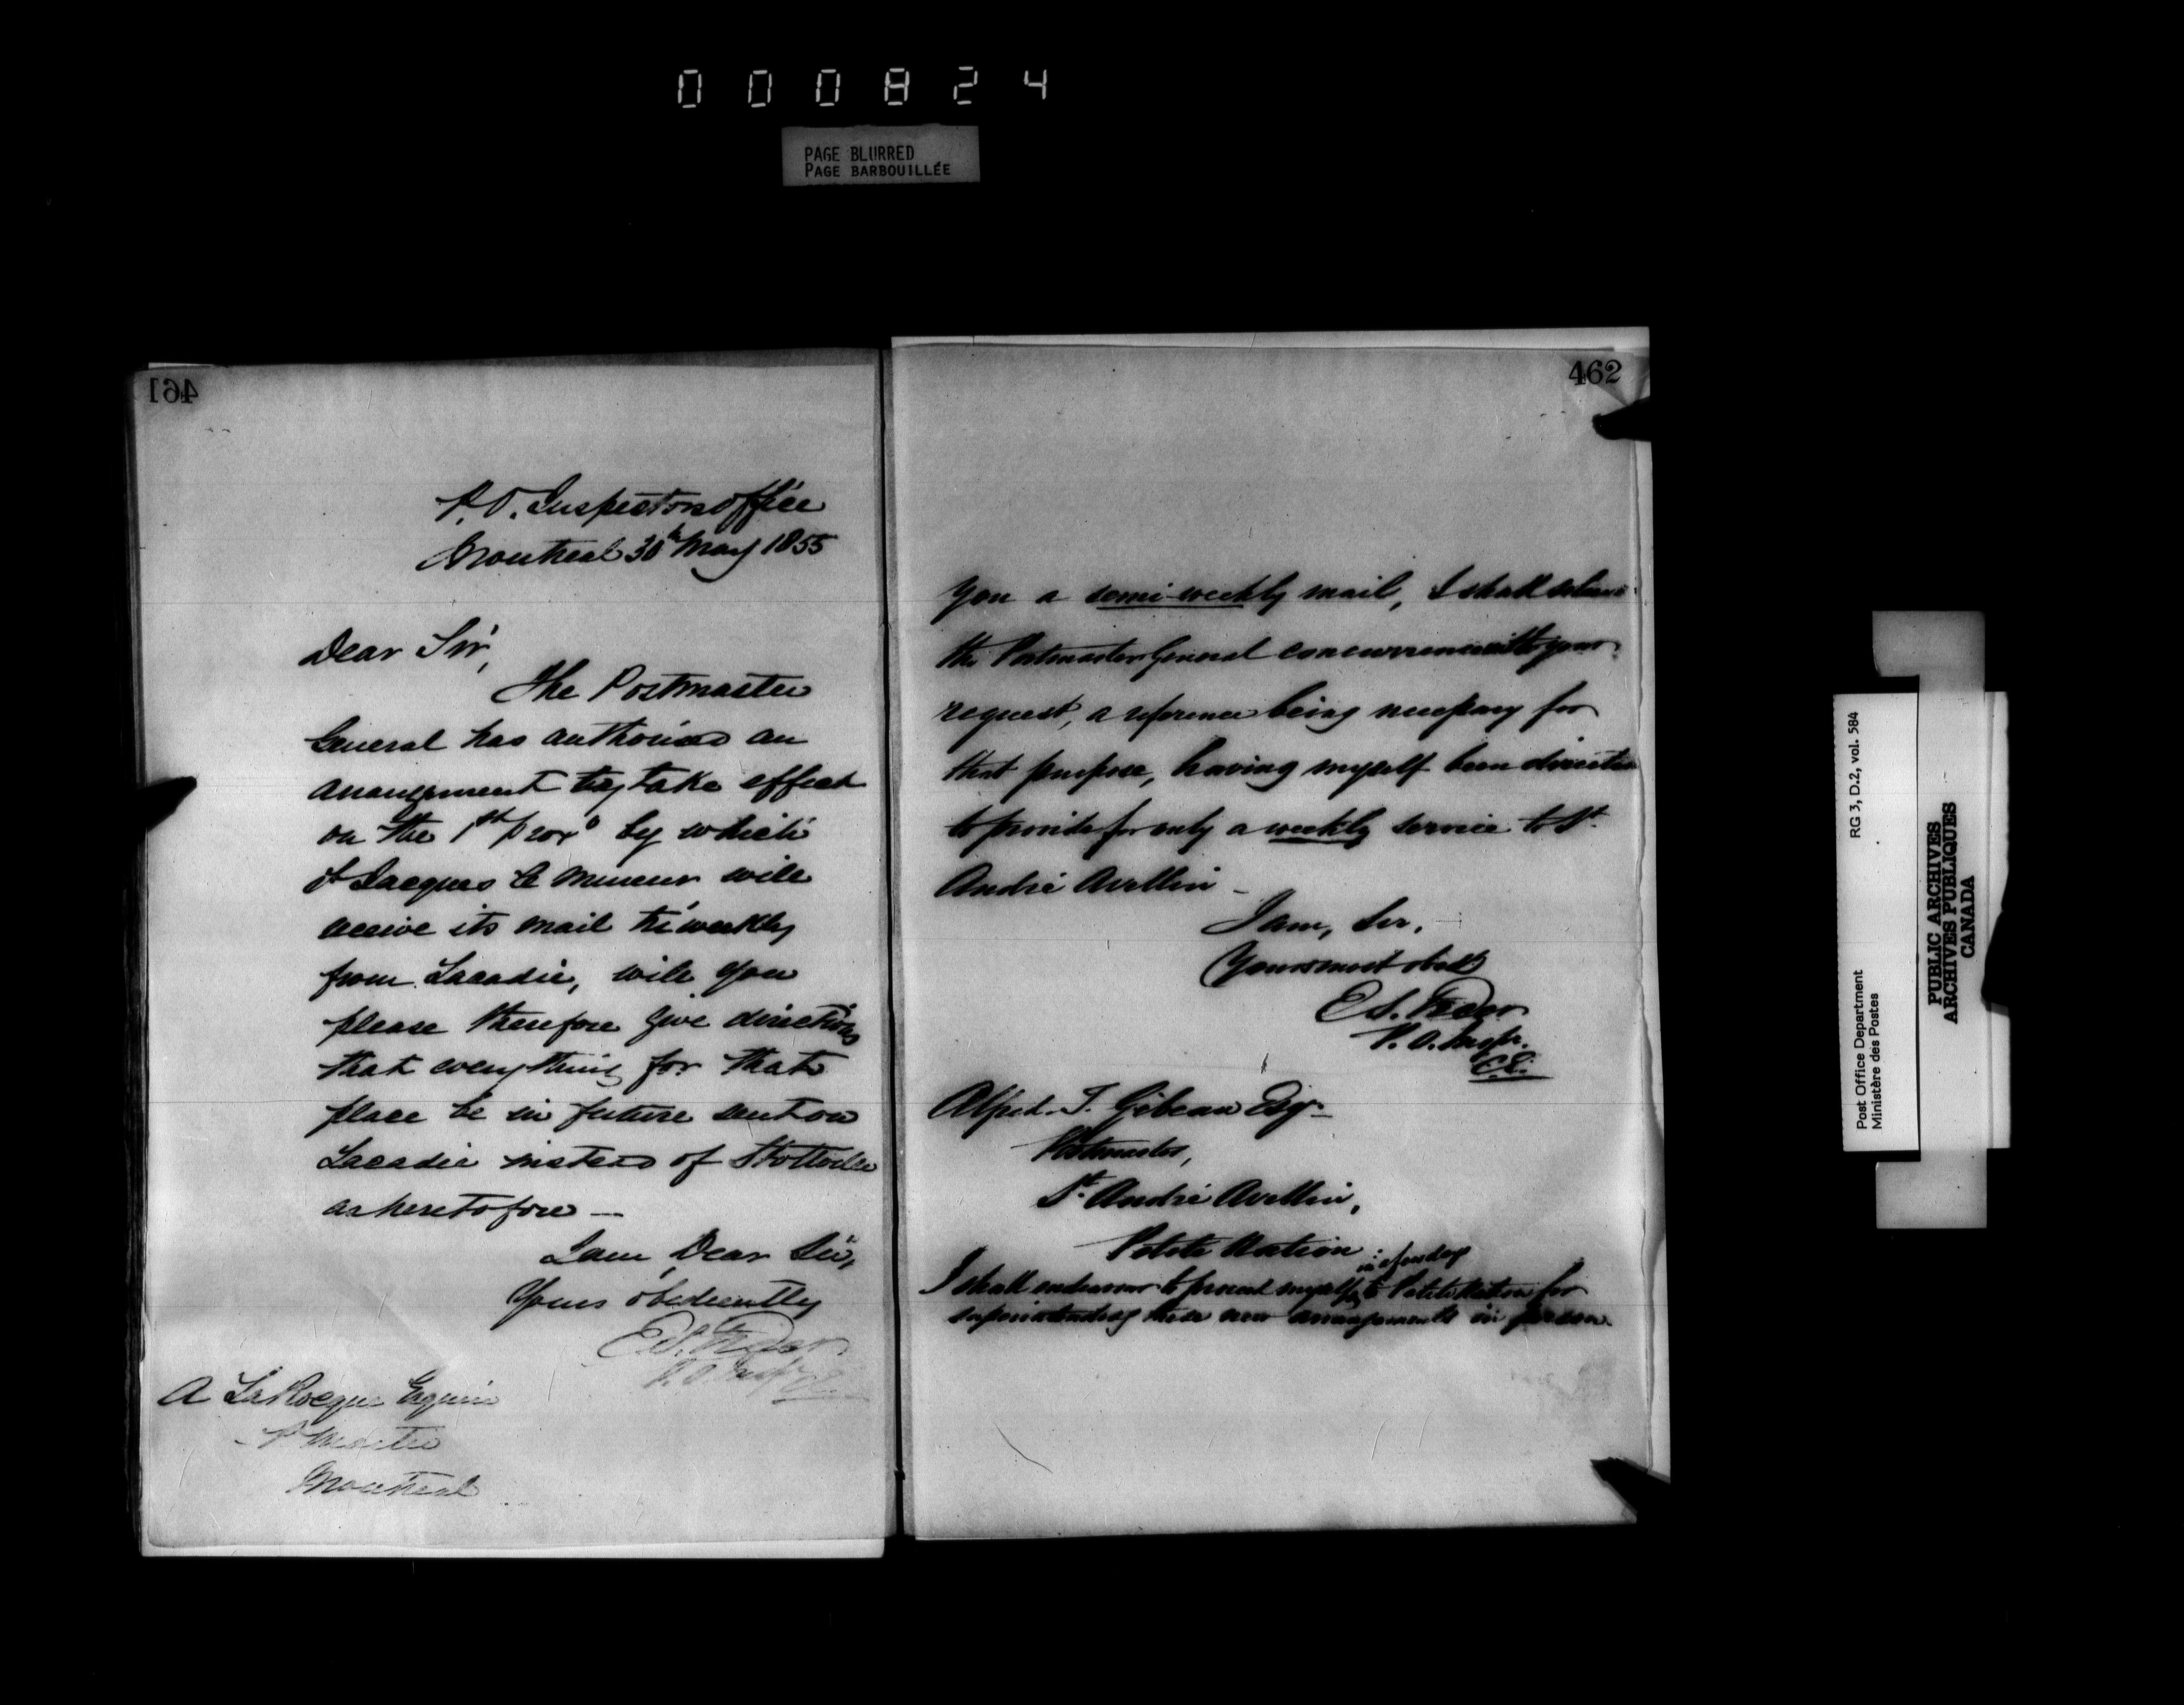 000824
PAGE BLURRED
PAGE BARBOUILLÉE
461
P.O. Inspectors Office
Montreal 30th May 1855
Dear Sir,
The Postmaster
General has authorized an
arrangement to take effect
on the 1st proxo by which
St Jacques le Mineur will
receive its mail tri weekly
from Lacadie, will you
please therefore give directions
that everything for that
place be in future sent on
Lacadie instead of Stottville
as heretofore —
I am, Dear Sir,
Yours obediently
E.S. Freer
P.O. Inspr C.E.
A LaRocque Esquire
P Master
Montreal
462
you a semi-weekly mail, I shall
the Postmaster General concurrence with your
request, a reference being necessary for
that purpose, having myself been directed
to provide for only a weekly service to St.
André Avellin —
I am, Sir,
Your most obedt
E.S. Freer
P.O. Inspr.
C.E.
Alfred T. Gibeau Esqr.
Postmaster,
St. André Avellin,
Petite Nation
in a few days
I shall endeavour to present myself to Petite Nation for
superintending these new arrangements in person.
Post Office Department
Ministère des Postes
RG 3, D.2, vol. 584
PUBLIC ARCHIVES
ARCHIVES PUBLIQUES
CANADA